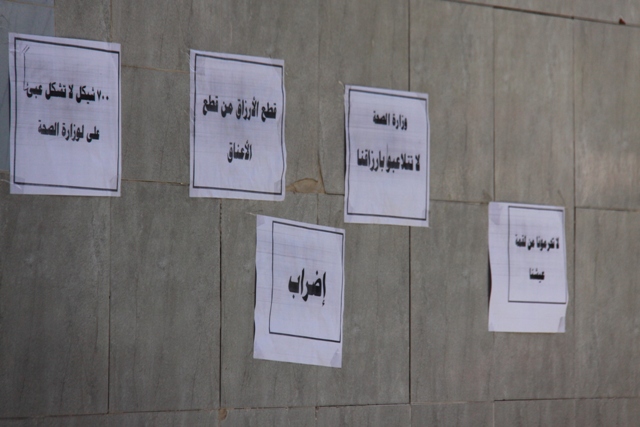 ٧٠٠ شيكل لا تشكل عبئ
على لوزارة الصحة
قطع الأرزاق من قطع
الأعناق
وزارة الصحة
لا تتلاعبو بارزاقنا
إضراب
لا تحرمونا من لقمة
عيشنا